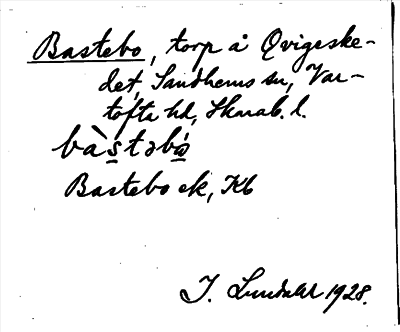 Bastebo, torp å Qvigeske-
det, Sandhems sn, Var-
tofta hd, Skarab. l.
bàstəbo
Bastebo ek, Kb
J. Lundahl 1928.